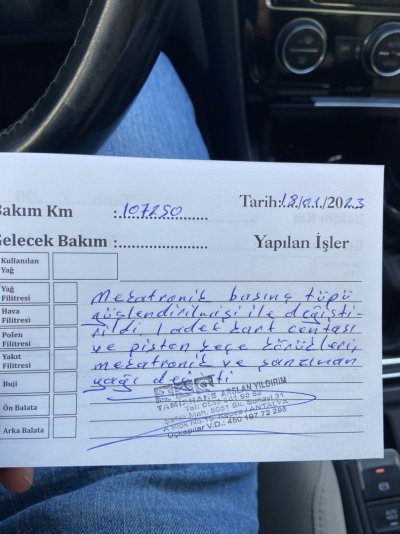 Bakım Km :107250 Tarih:18/01/2023
Gelecek Bakım : Yapılan İşler
Kullanılan Yağ
Yağ Filitresi
Hava Filitresi
Polen Filitresi
Yakıt Filitresi
Buji
Ön Balata
Arka Balata
Mekatronik basınç tüpü
güçlendirilmişi ile değişti-
rildi. 1 adet kart contası
ve piston keçe körükleri,
mekatronik ve şanzıman
yağı değişti
ARSLAN YILDIRIM
Şafak Mah. 5051 Sk. Sanayi 31
/ ANTALYA
V.D.: 450 197 72 266